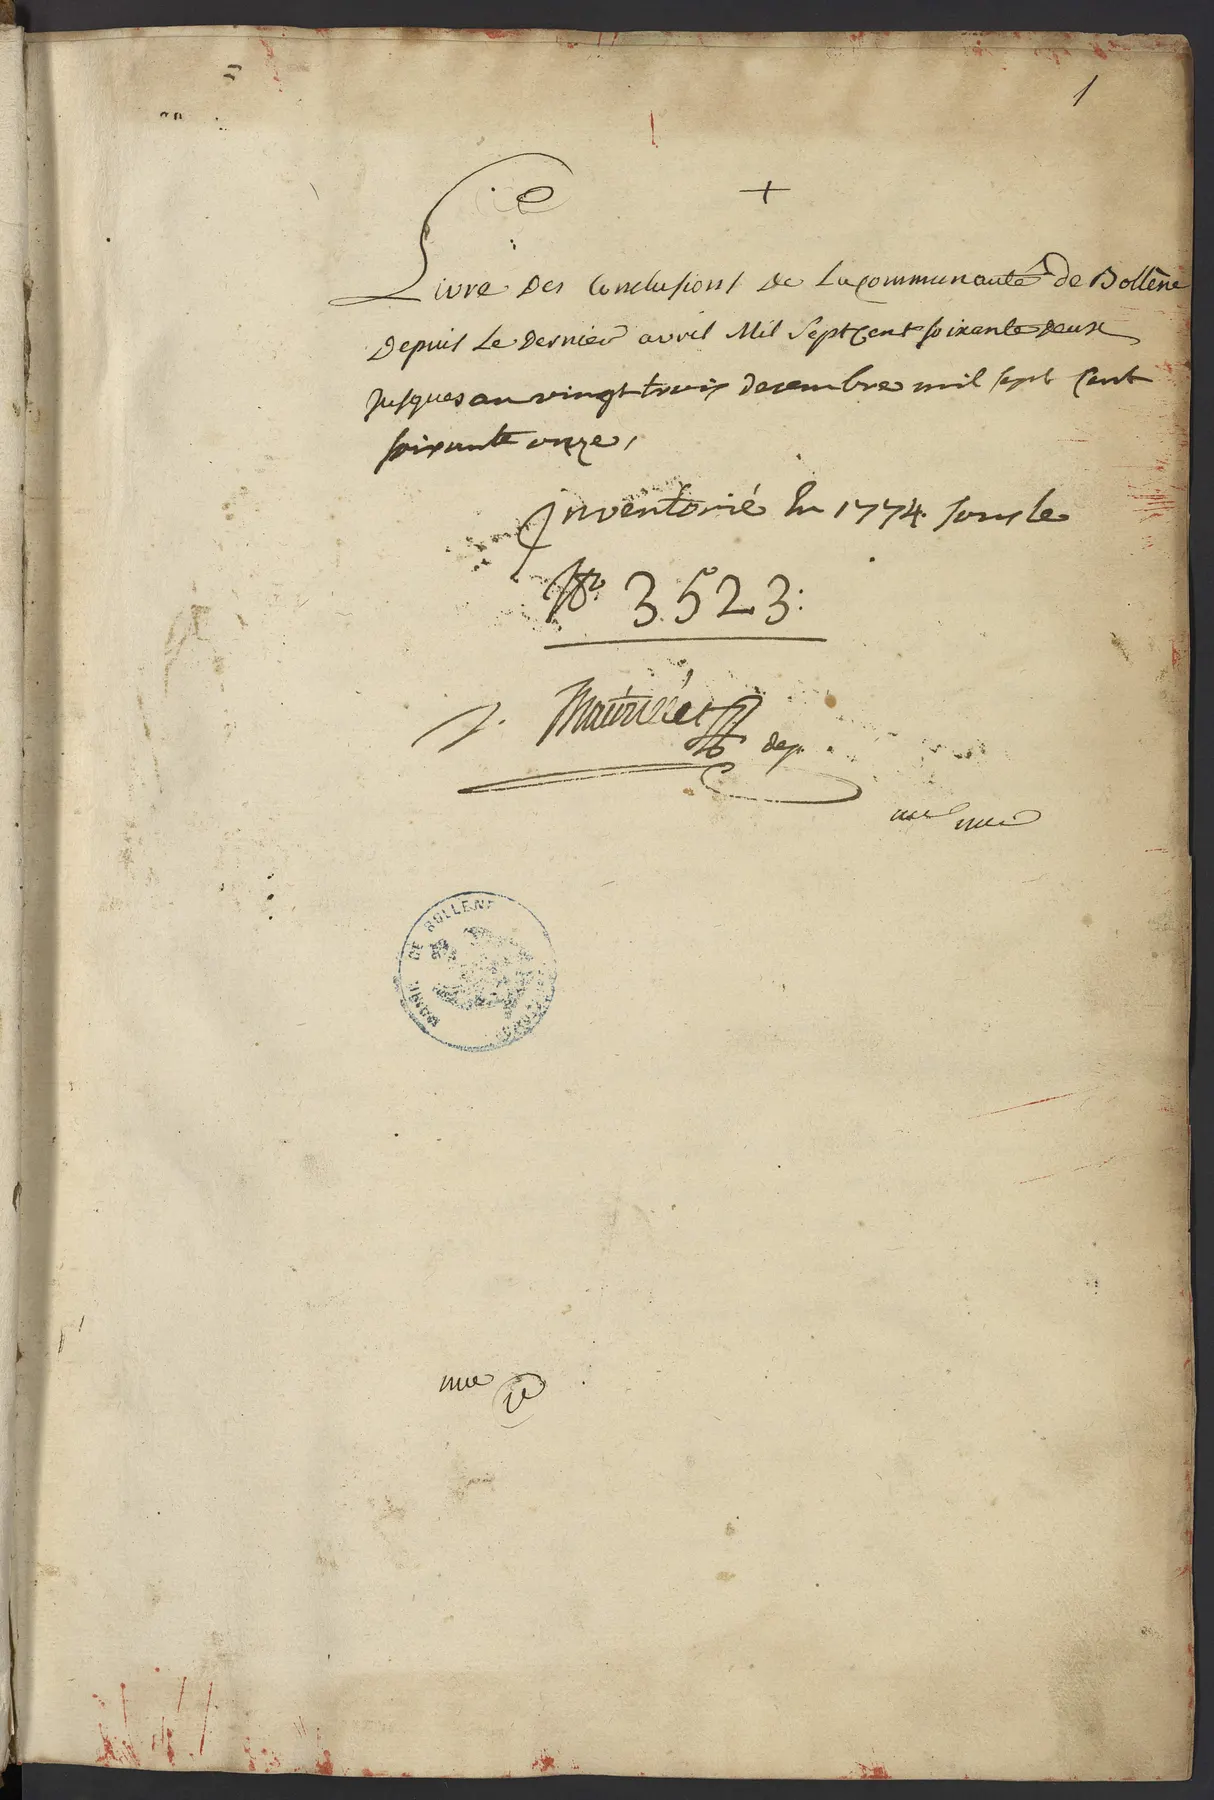 1
+
Livre Des Conclusions De La Communauté de Bollène
Depuis Le Dernier avril Mil Sept Cent soixante deux
Jusques au vingt trois decembre mil sept Cent
soixante onze,
Inventorié En 1774 sous le
No. 3523:
dep.
MAIRIE DE BOLLENE